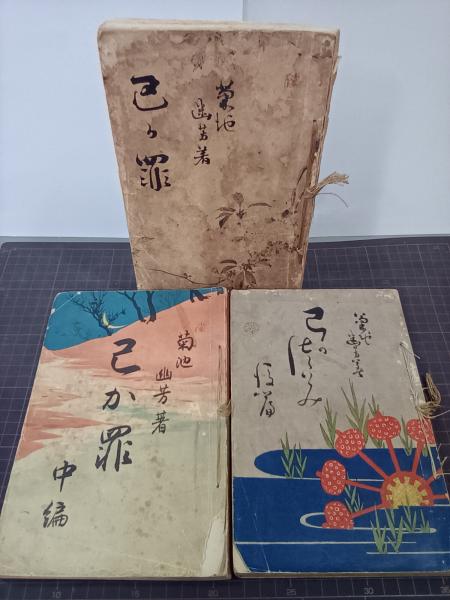 菊池
幽芳著
己が罪
菊池
幽芳著
己が罪
中編
菊池
幽芳著
己のつみ
後篇
10
15
25
30